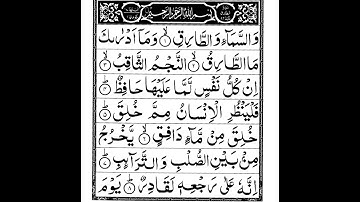 بِسْمِ اللهِ الرَّحْمٰنِ الرَّحِيْمِ
وَالسَّمَآءِ وَالطَّارِقِ ۙ﴿۱﴾ وَمَاۤ اَدْرٰىكَ
مَا الطَّارِقُ ۙ﴿۲﴾ النَّجْمُ الثَّاقِبُ ۙ﴿۳﴾
اِنْ كُلُّ نَفْسٍ لَّمَّا عَلَيْهَا حَافِظٌ ؕ﴿۴﴾
فَلْيَنْظُرِ الْاِنْسَانُ مِمَّ خُلِقَ ؕ﴿۵﴾
خُلِقَ مِنْ مَّآءٍ دَافِقٍ ۙ﴿۶﴾ يَّخْرُجُ
مِنْۢ بَيْنِ الصُّلْبِ وَالتَّرَآئِبِ ؕ﴿۷﴾
اِنَّهٗ عَلٰى رَجْعِهٖ لَقَادِرٌ ؕ﴿۸﴾ يَوْمَ